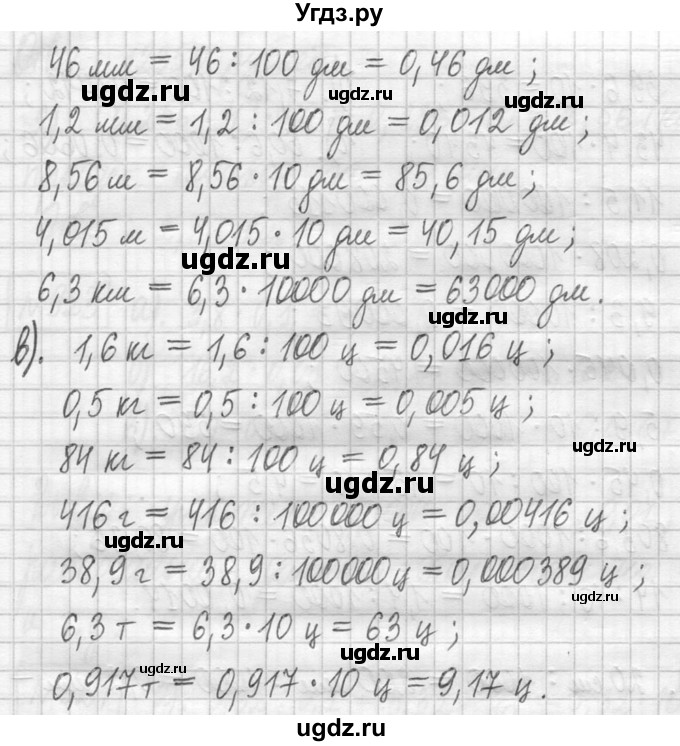 Угдз.ру
46 мм = 46 : 100 дм = 0,46 дм ;
ugdz.ru ugdz.ru
1,2 мм = 1,2 : 100 дм = 0,012 дм ;
8,56 м = 8,56 · 10 дм = 85,6 дм ;
4,015 м = 4,015 · 10 дм = 40,15 дм ;
ugdz.ru
6,3 км = 6,3 · 10000 дм = 63000 дм.
ugdz.ru
в). 1,6 кг = 1,6 : 100 ц = 0,016 ц ;
0,5 кг = 0,5 : 100 ц = 0,005 ц ;
ugdz.ru
84 кг = 84 : 100 ц = 0,84 ц ;
ugdz.ru
416 г = 416 : 100000 ц = 0,00416 ц ;
ugdz.ru
38,9 г = 38,9 : 100000 ц = 0,000389 ц ;
ugdz.ru
6,3 т = 6,3 · 10 ц = 63 ц ;
ugdz.ru
ugdz.ru
0,917 т = 0,917 · 10 ц = 9,17 ц.
ugdz.ru